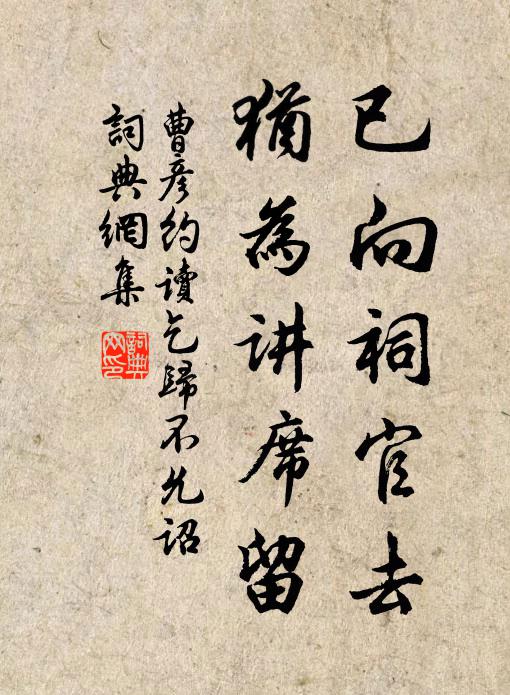 已向祠官去
猶為讲席留
曹彦约讀乞歸不允詔
詞典網集
詞典网印